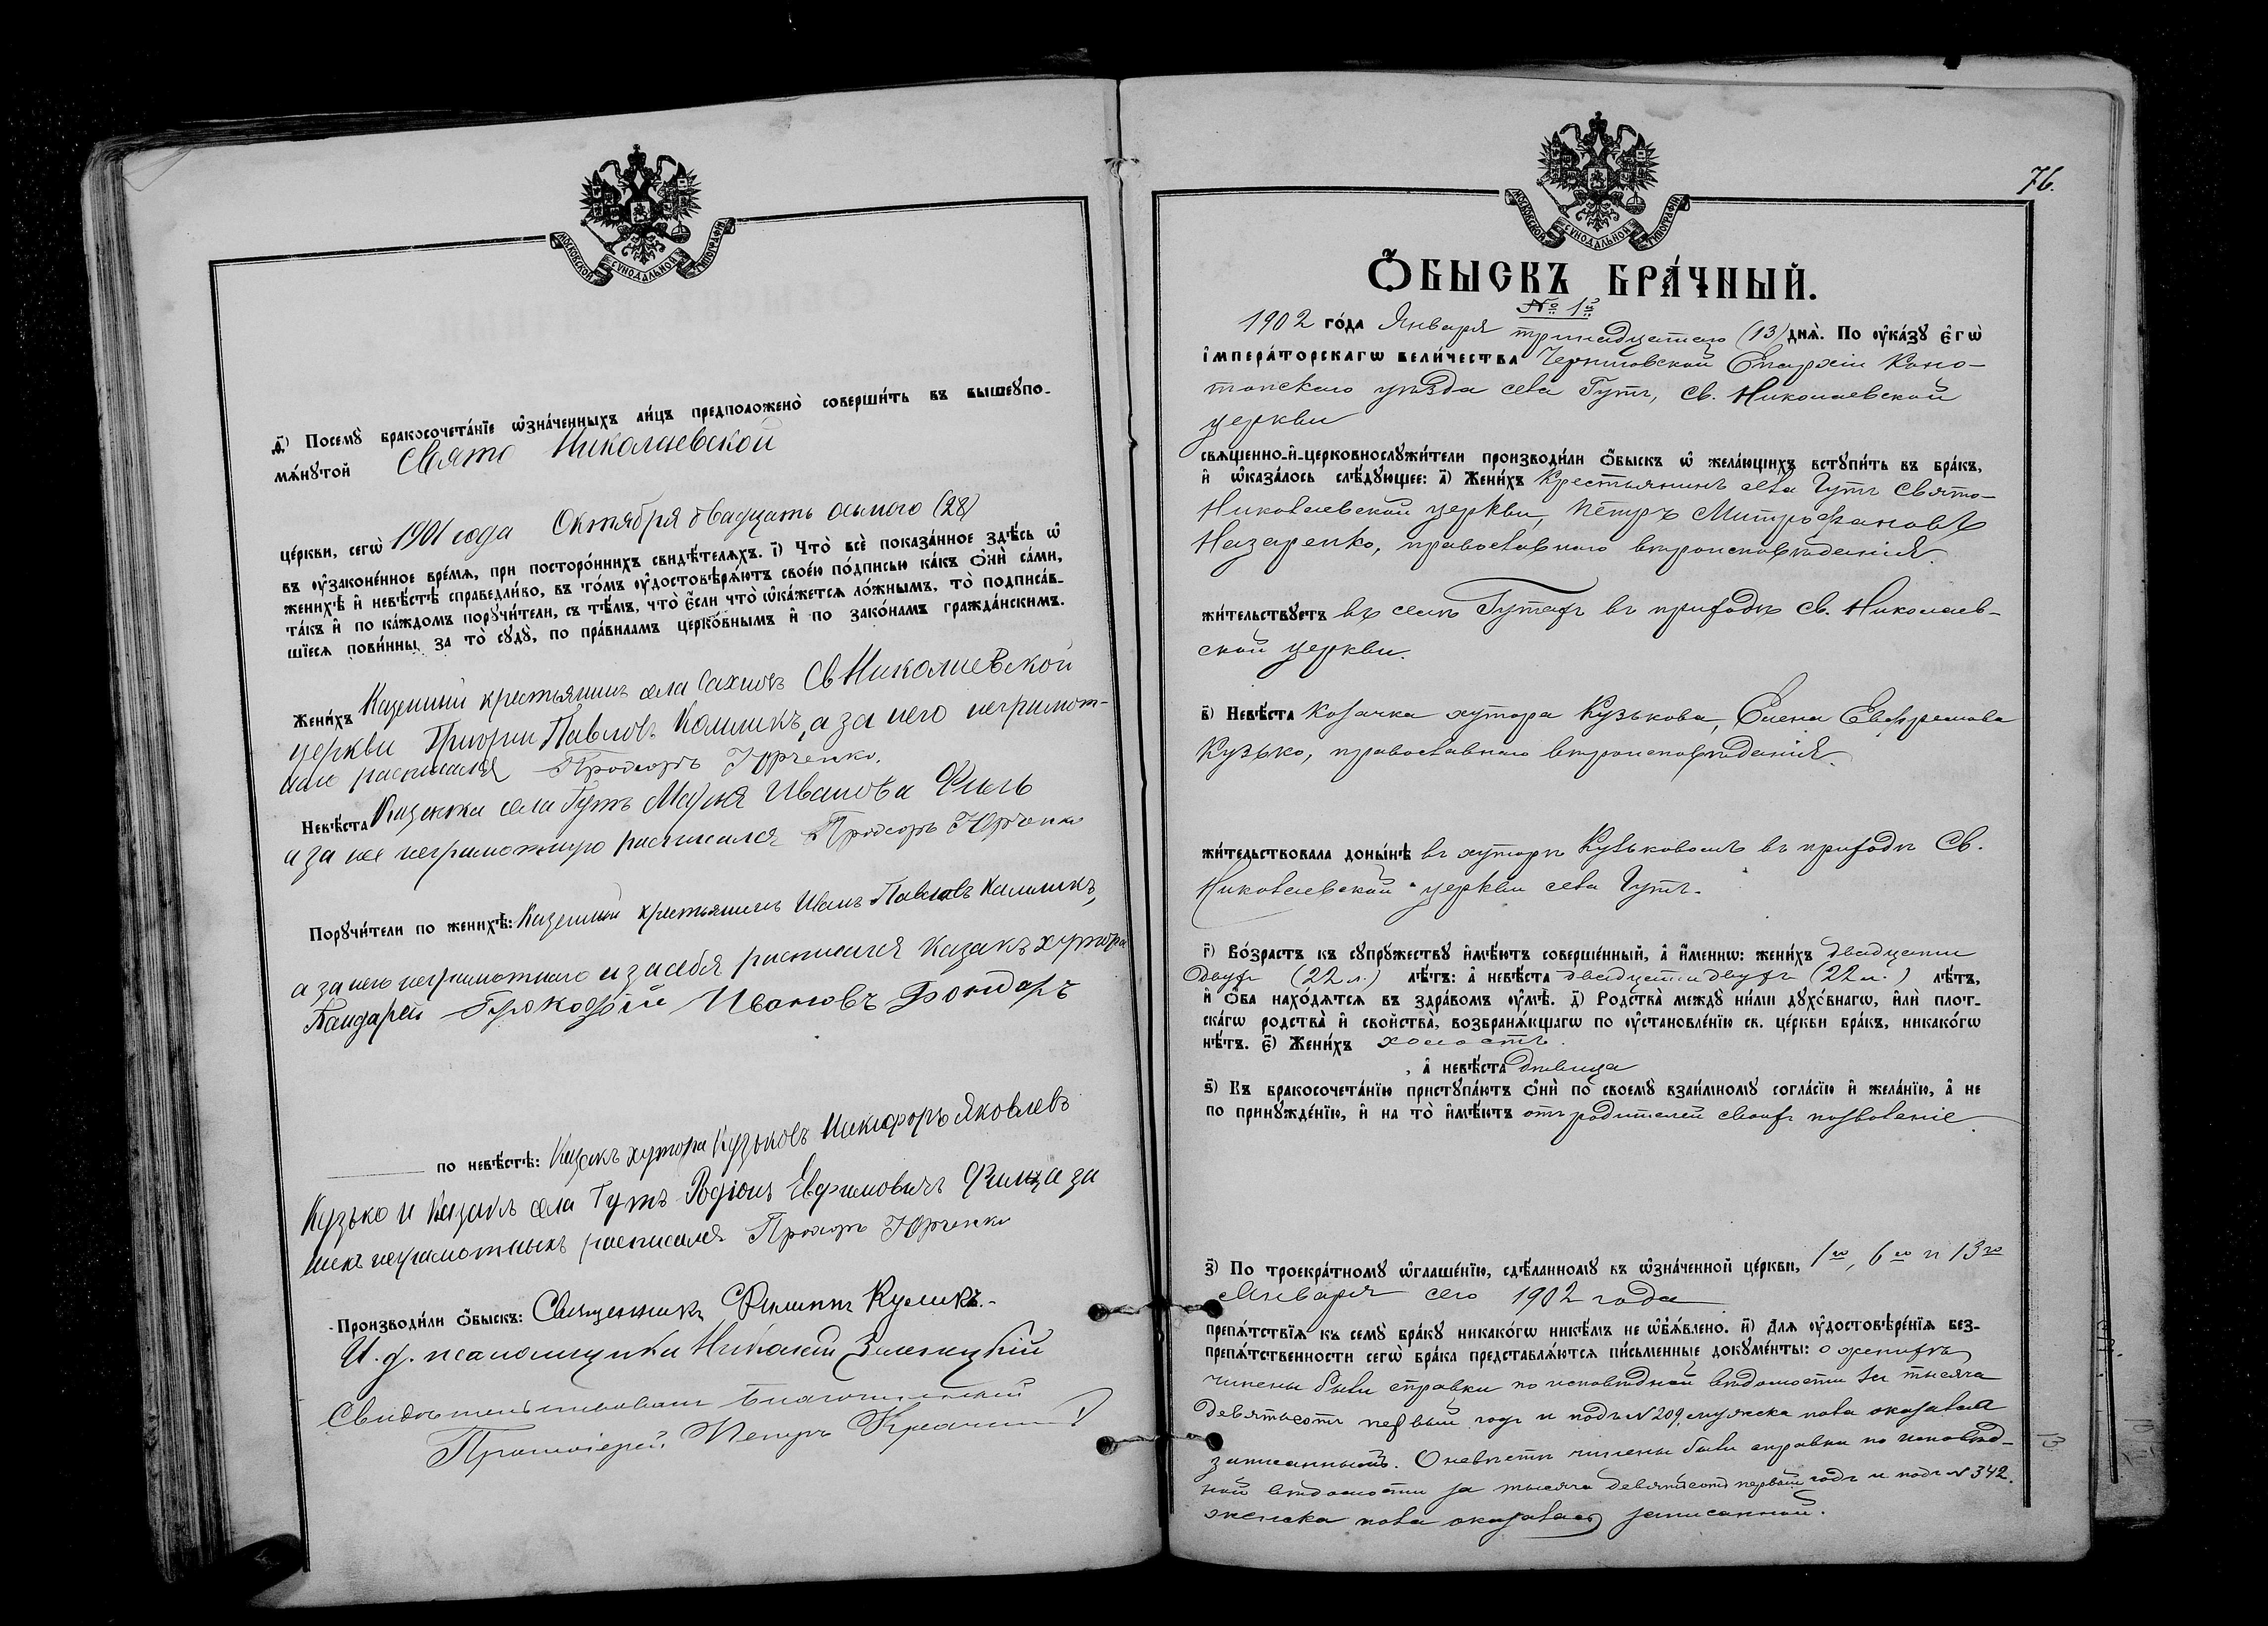 МОСКОВСКОЙ СУНОДАЛЬНОЙ ТИПОГРАФІИ
д҃) Посемꙋ̀ бракосочета́нїе ѡ҆зна́ченныхъ ли́цъ предположено̀ соверши́ть въ вышеꙋпо-
мѧ́нꙋтой Свято Николаевской
це́ркви, сегѡ̀ 1901 года Октября двадцать осьмого (28)
въ ᲂу҆законе́нное вре́мѧ, при посторо́ннихъ свидѣ́телѧхъ. і҃) Что̀ всѐ пока́занное здѣ́сь ѡ҆
женихѣ̀ и҆ невѣ́стѣ справедли́во, въ то́мъ ᲂу҆достовѣрѧ́ютъ свое́ю по́дписью ка́къ ѻ҆нѝ са́ми,
та́къ и҆ по ка́ждомъ порꙋчи́тели, съ тѣ́мъ, что̀ є҆́сли что̀ ѡ҆ка́жетсѧ ло́жнымъ, то̀ подписа́в-
шїесѧ пови́нны за то̀ сꙋдꙋ̀, по пра́виламъ церко́внымъ и҆ по зако́намъ гражда́нскимъ.
Жени́хъ Казенный крестьянинъ села Сахновъ Св Николаевской
церкви Григорий Павлов. Калмыкъ, а за него неграмот-
наго расписался Прохоръ Юрченко.
Невѣ́ста Казачка села Гутъ Марья Иванова Филь
а за нее неграмотную расписался Прохоръ Юрченко
Порꙋчи́тели по женихѣ̀: Казенный крестьянинъ Иванъ Павловъ Калмыкъ,
а за него неграмотнаго и за себя расписался казакъ хутора
Бондарей Прокофій Ивановъ Бондарь
по невѣ́стѣ: Казакъ хутора Кузьковъ Никифоръ Яковлевъ
Кузько и Казакъ села Гутъ Родіонъ Ефимовичъ Филь, а за
нихъ неграмотныхъ расписался Прохоръ Юрченко
Производи́ли ѻ҆́быскъ: Священникъ Филиппъ Куликъ.
И. д. псаломщика Николай Зеленицкій
Свидѣтельствовалъ Благочинный
Протоіерей Петръ
76.
МОСКОВСКОЙ СУНОДАЛЬНОЙ ТИПОГРАФІИ
Ѻ҆́БЫСКЪ БРА́ЧНЫЙ.
№ 1й
1902 го́да Января тринадцатаго (13) днѧ̀. По ᲂу҆ка́зꙋ є҆гѡ̀
і҆мпера́торскагѡ вели́чества Черниговской Епархіи Коно-
топскаго уѣзда села Гутъ, Св. Николаевской
церкви
свѧще́нно-и҆-церковнослꙋжи́тели производи́ли ѻ҆́быскъ ѡ҆ жела́ющихъ встꙋпи́ть въ бра́къ,
и҆ ѡ҆каза́лось слѣ́дꙋющее: а҃) Жени́хъ Крестьянинъ села Гутъ Свято-
Николаевской церкви, Петръ Митрофановъ
Назаренко, православнаго вѣроисповѣданія.
жи́тельствꙋетъ въ селѣ Гутахъ въ приходѣ Св. Николаев-
ской церкви.
в҃) Невѣ́ста Козачка хутора Кузькова, Елена Евфремова
Кузько, православнаго вѣроисповѣданія.
жи́тельствовала доны́нѣ въ хуторѣ Кузьковомъ въ приходѣ Св.
Николаевской церкви села Гутъ.
г҃) Во́зрастъ къ сꙋпрꙋ́жествꙋ и҆мѣ́ютъ соверше́нный, а҆ и҆́меннѡ: жени́хъ двадцати
двухъ (22 л.) лѣ́тъ: а҆ невѣ́ста двадцати двухъ (22 л.) лѣ́тъ,
и҆ ѻ҆́ба нахо́дѧтсѧ въ здра́вомъ ᲂу҆мѣ̀. д҃) Родства̀ междꙋ̀ ни́ми дꙋхо́внагѡ, и҆лѝ плот-
ска́гѡ родства̀ и҆ свойства̀, возбранѧ́ющагѡ по ᲂу҆становле́нїю св. це́ркви бра́къ, никако́гѡ
нѣ́тъ. є҃) Жени́хъ холостъ.
, а҆ невѣ́ста дѣвица
ѕ҃) Къ бракосочета́нїю пристꙋпа́ютъ ѻ҆нѝ по своемꙋ̀ взаи́мномꙋ согла́сїю и҆ жела́нїю, а҆ не
по принꙋжде́нїю, и҆ на то̀ и҆мѣ́ютъ отъ родителей своихъ позволеніе.
з҃) По троекра́тномꙋ ѡ҆глаше́нїю, сдѣ́ланномꙋ въ ѡ҆зна́ченной це́ркви, 1го, 6го и 13го
Января сего 1902 года
препѧ́тствїѧ къ семꙋ̀ бра́кꙋ никако́гѡ никѣ́мъ не ѡ҆б̾ѧ́влено. и҃) Длѧ ᲂу҆достовѣре́нїѧ без-
препѧ́тственности сегѡ̀ бра́ка представлѧ́ютсѧ пи́сьменные докꙋме́нты: о женихѣ
чинены были справки по исповѣдной вѣдомости за тысяча
девятьсотъ первый годъ и подъ № 209. мужска пола оказался
записаннымъ. О невѣстѣ чинены были справки по исповѣд-
ной вѣдомости за тысяча девятьсотъ первый годъ и подъ № 342.
женска пола оказалась записанной.